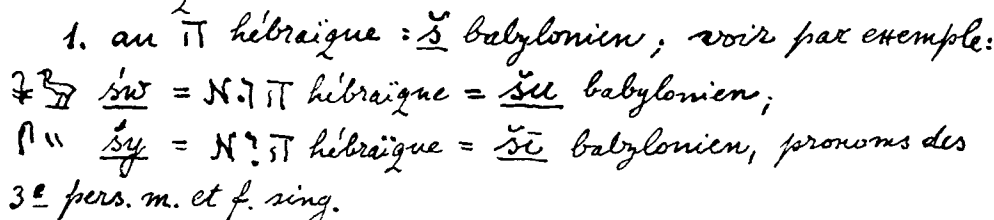 1. au ה hébraïque : š babylonien ; voir par exemple:
𓇓𓅱 św = הוּא hébraïque = šu babylonien ;
𓋴𓏭 śy = הִיא hébraïque = šī babylonien, pronoms des
3e pers. m. et f. sing.